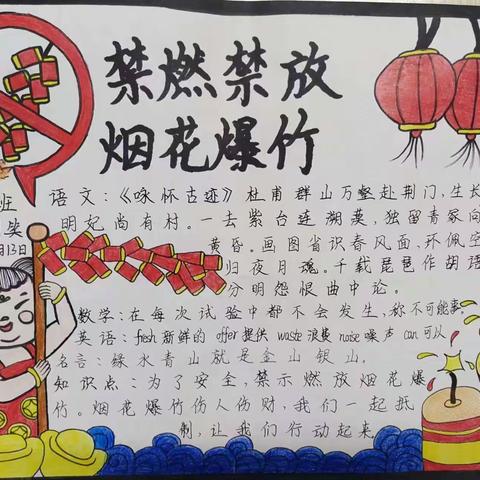 禁燃禁放
烟花爆竹
班
月13日
语文：《咏怀古迹》杜甫群山万壑赴荆门，生长
明妃尚有村。一去紫台连朔漠，独留青冢向
黄昏。画图省识春风面，环佩空
归夜月魂。千载琵琶作胡语
分明怨恨曲中论。
数学：在每次试验中都不会发生，称不可能事
英语：fresh新鲜的 offer提供 waste浪费 noise噪声 can可以
名言：绿水青山就是金山银山。
知识点：为了安全，禁示燃放烟花爆
竹。烟花爆竹伤人伤财，我们一起抵
制，让我们行动起来